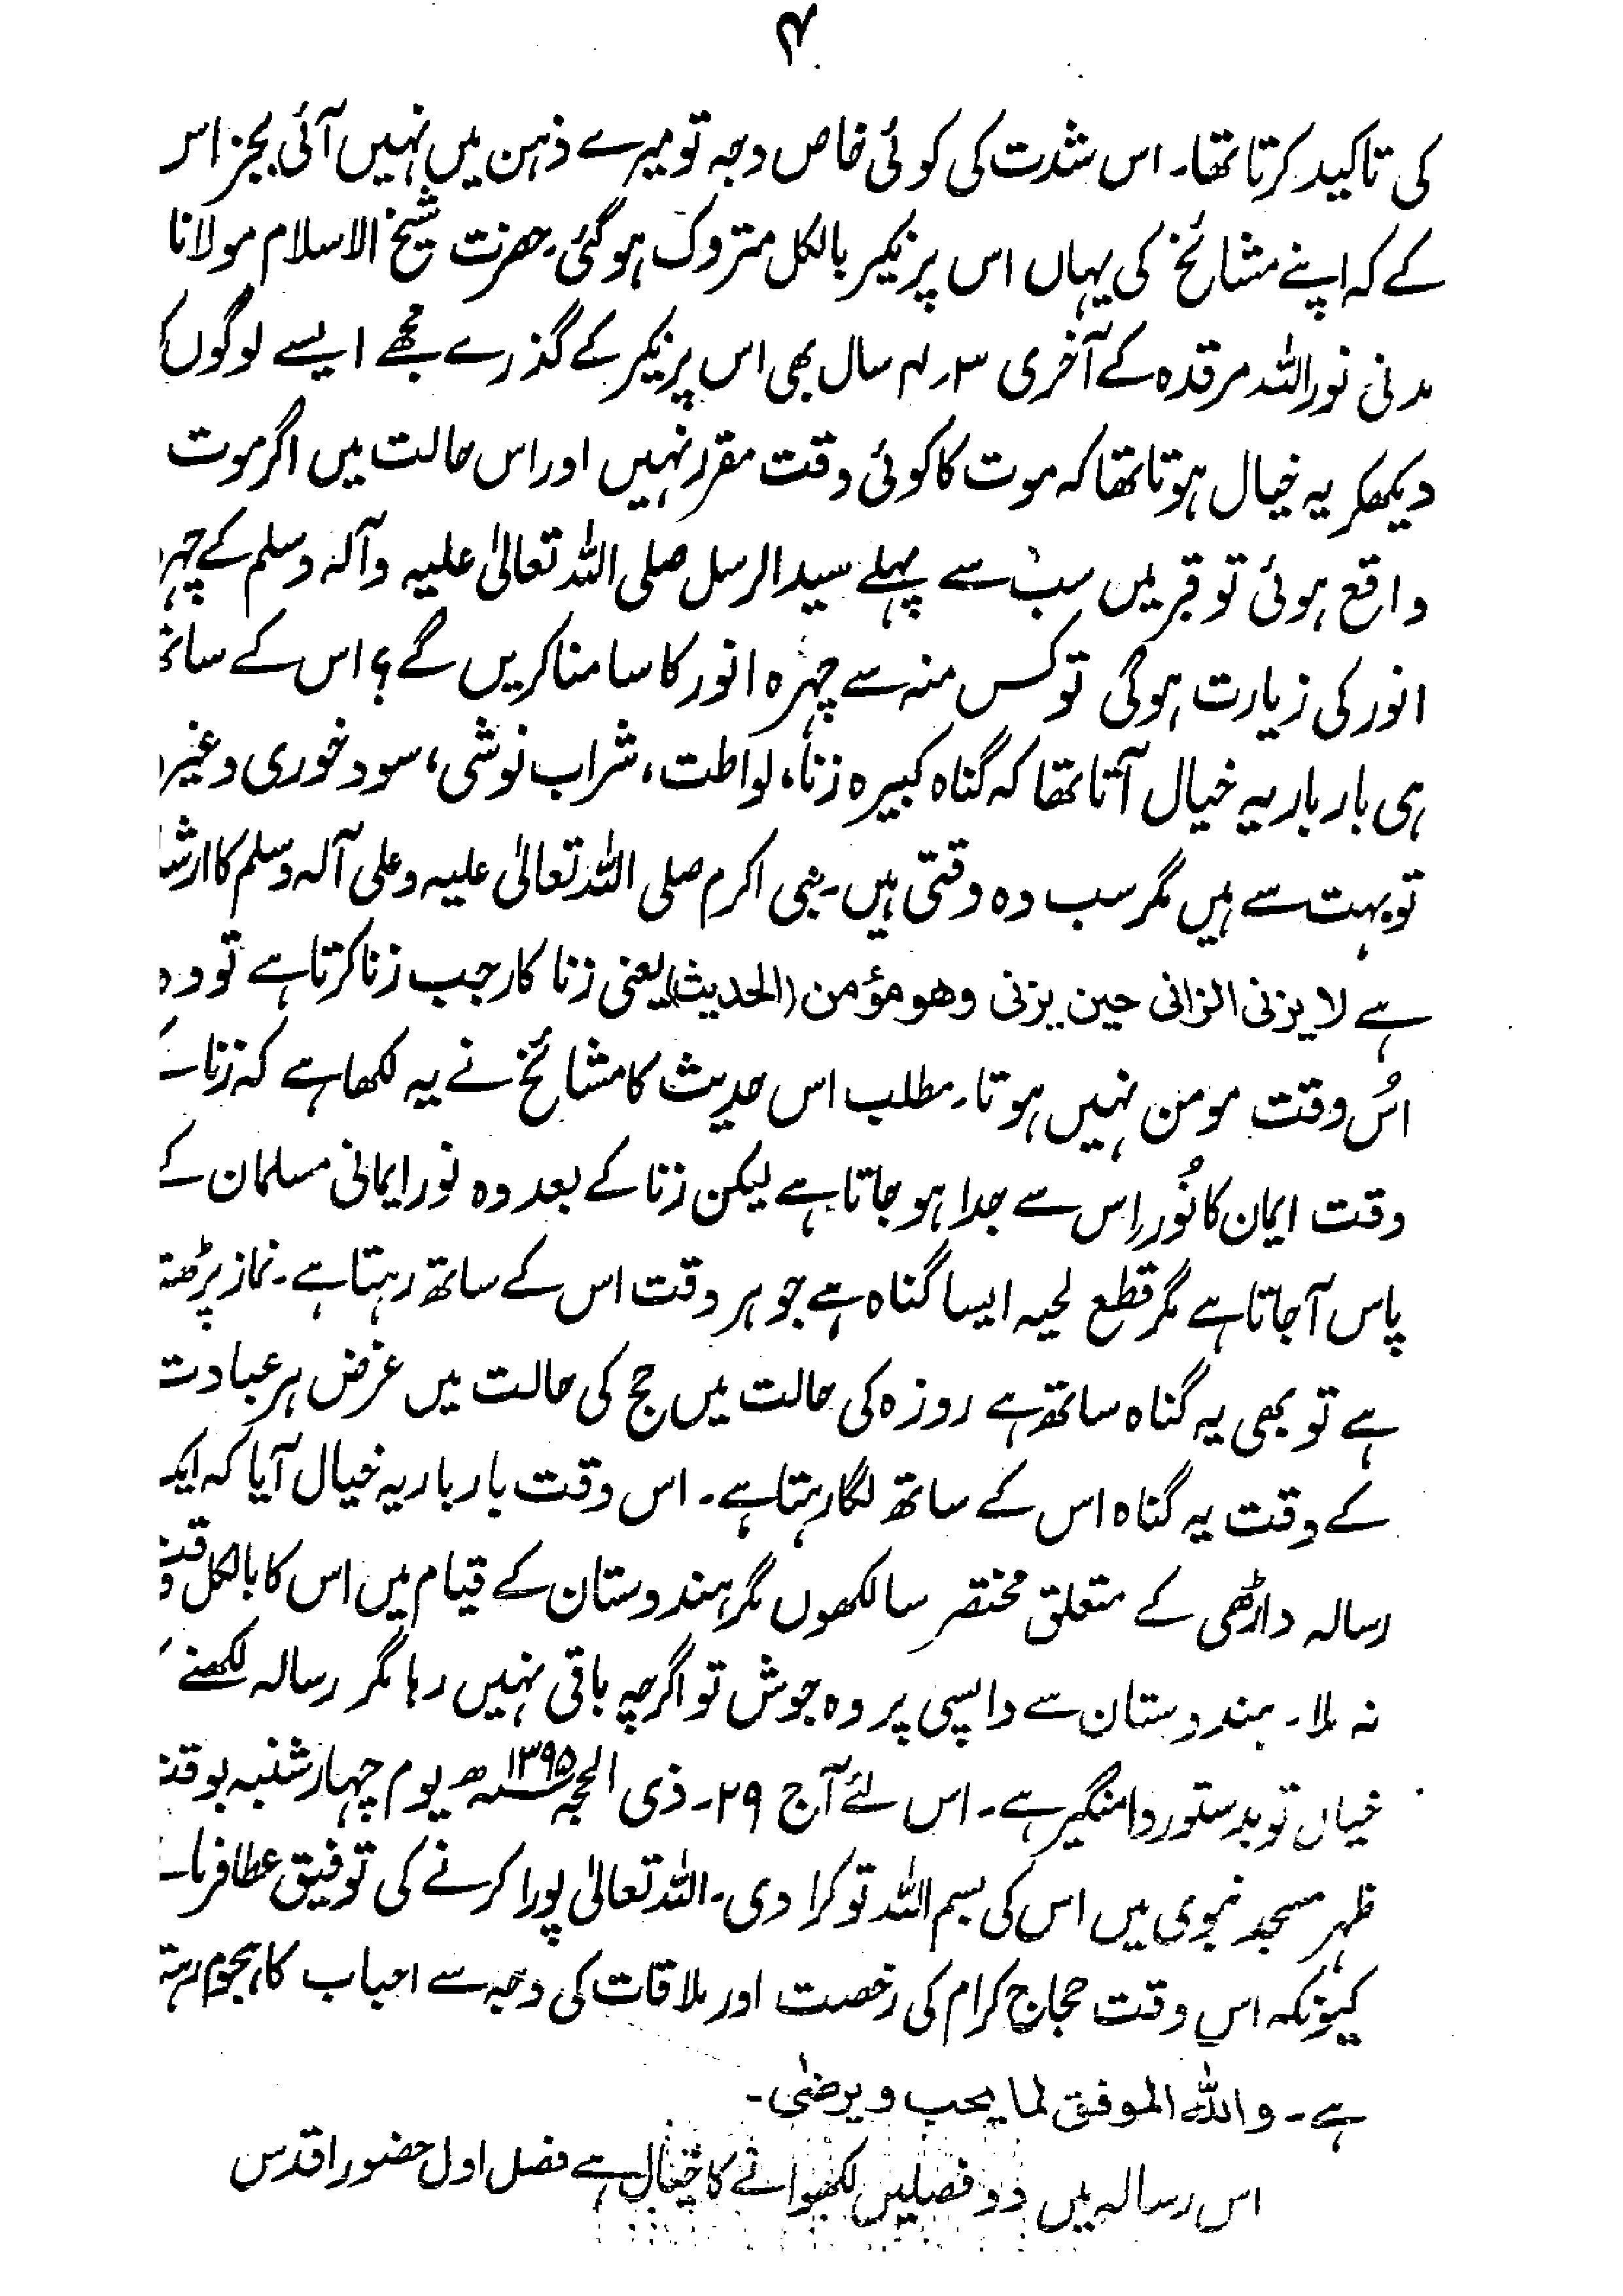 ۴
کی تاکید کرتا تھا۔ اس شدت کی کوئی خاص وجہ تو میرے ذہن میں نہیں آئی بجز اس
کے کہ اپنے مشائخ کی یہاں اس پر نکیر بالکل متروک ہوگئی۔ حضرت شیخ الاسلام مولانا
مدنی نوراللہ مرقدہ کے آخری ۳۔۴ سال بھی اس پر نکیر کے گذرے مجھے ایسے لوگوں کو
دیکھکر یہ خیال ہوتا تھا کہ موت کا کوئی وقت مقرر نہیں اور اس حالت میں اگر موت
واقع ہوئی تو قبر میں سب سے پہلے سید الرسل صلی اللہ تعالیٰ علیہ وآلہ وسلم کے چہرہ
انور کی زیارت ہوگی تو کس منہ سے چہرہ انور کا سامنا کریں گے؟ اس کے ساتھ
ہی بار بار یہ خیال آتا تھا کہ گناہ کبیرہ زنا، لواطت، شراب نوشی، سود خوری وغیرہ
تو بہت سے ہیں مگر سب وہ وقتی ہیں۔ نبی اکرم صلی اللہ تعالیٰ علیہ وعلی آلہ وسلم کا ارشاد
ہے لا یزنی الزانی حین یزنی وھو مؤمن (الحدیث) یعنی زنا کار جب زنا کرتا ہے تو وہ
اُس وقت مومن نہیں ہوتا۔ مطلب اس حدیث کا مشائخ نے یہ لکھا ہے کہ زنا کے
وقت ایمان کا نُور اِس سے جدا ہوجاتا ہے لیکن زنا کے بعد وہ نور ایمانی مسلمان کے
پاس آجاتا ہے مگر قطع لحیہ ایسا گناہ ہے جو ہر وقت اس کے ساتھ رہتا ہے۔ نماز پڑھتا
ہے تو بھی یہ گناہ ساتھ ہے روزہ کی حالت میں حج کی حالت میں غرض ہر عبادت
کے وقت یہ گناہ اس کے ساتھ لگا رہتا ہے۔ اس وقت بار بار یہ خیال آیا کہ ایک
رسالہ داڑھی کے متعلق مختصر سا لکھوں مگر ہندوستان کے قیام میں اس کا بالکل وقت
نہ ملا۔ ہندوستان سے واپسی پر وہ جوش تو اگرچہ باقی نہیں رہا مگر رسالہ لکھنے کا
خیال تو بدستور دامنگیر ہے۔ اس لئے آج ۲۹۔ ذی الحجہ ۱۳۹۵ھ یوم چہارشنبہ بوقت
ظہر مسجد نبوی میں اس کی بسم اللہ تو کرا دی۔ اللہ تعالیٰ پورا کرنے کی توفیق عطا فرمائے
کیونکہ اس وقت حجاج کرام کی رخصت اور ملاقات کی وجہ سے احباب کا ہجوم رہتا
ہے۔ واللہ الموفق لما یحب و یرضیٰ۔
اس رسالہ میں دو فصلیں لکھوانے کا خیال ہے فصل اول حضور اقدس